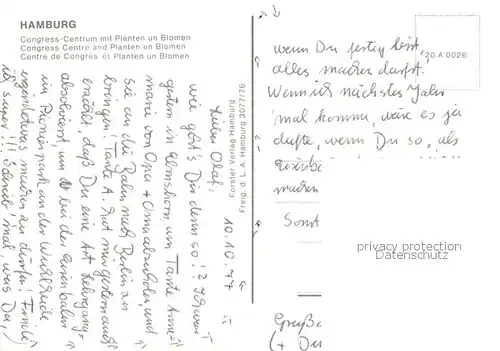 HAMBURG
Congress-Centrum mit Planten un Blomen
Congress Centre and Planten un Blomen
Centre de Congrès et Planten un Blomen
Forster Verlag Hamburg
Freig. d. L. A. Hamburg 3077/76
10.10.77
Lieber Olaf,
wie geht's Dir denn so!? Ich war
gestern in Elmshorn, um Tante Anne-
marie von Opa + Oma abzuholen und
sie an die Bahn nach Berlin zu
bringen! Tante A. hat mir gestern auch
erzählt, daß Du eine Art Lehrgang
absolvierst, um bei der Eisenbahn
im Pionierpark an der Wuhlheide
mitmachen zu dürfen! Finde
ich super!!! Schreib' mal, was Du,
wenn Du fertig bist,
alles machen darfst.
Wenn ich nächstes Jahr
mal komme, wäre es ja
dufte, wenn Du so, als
machen
Sonst
20 A 0026
privacy protection
Datenschutz
(+ Du